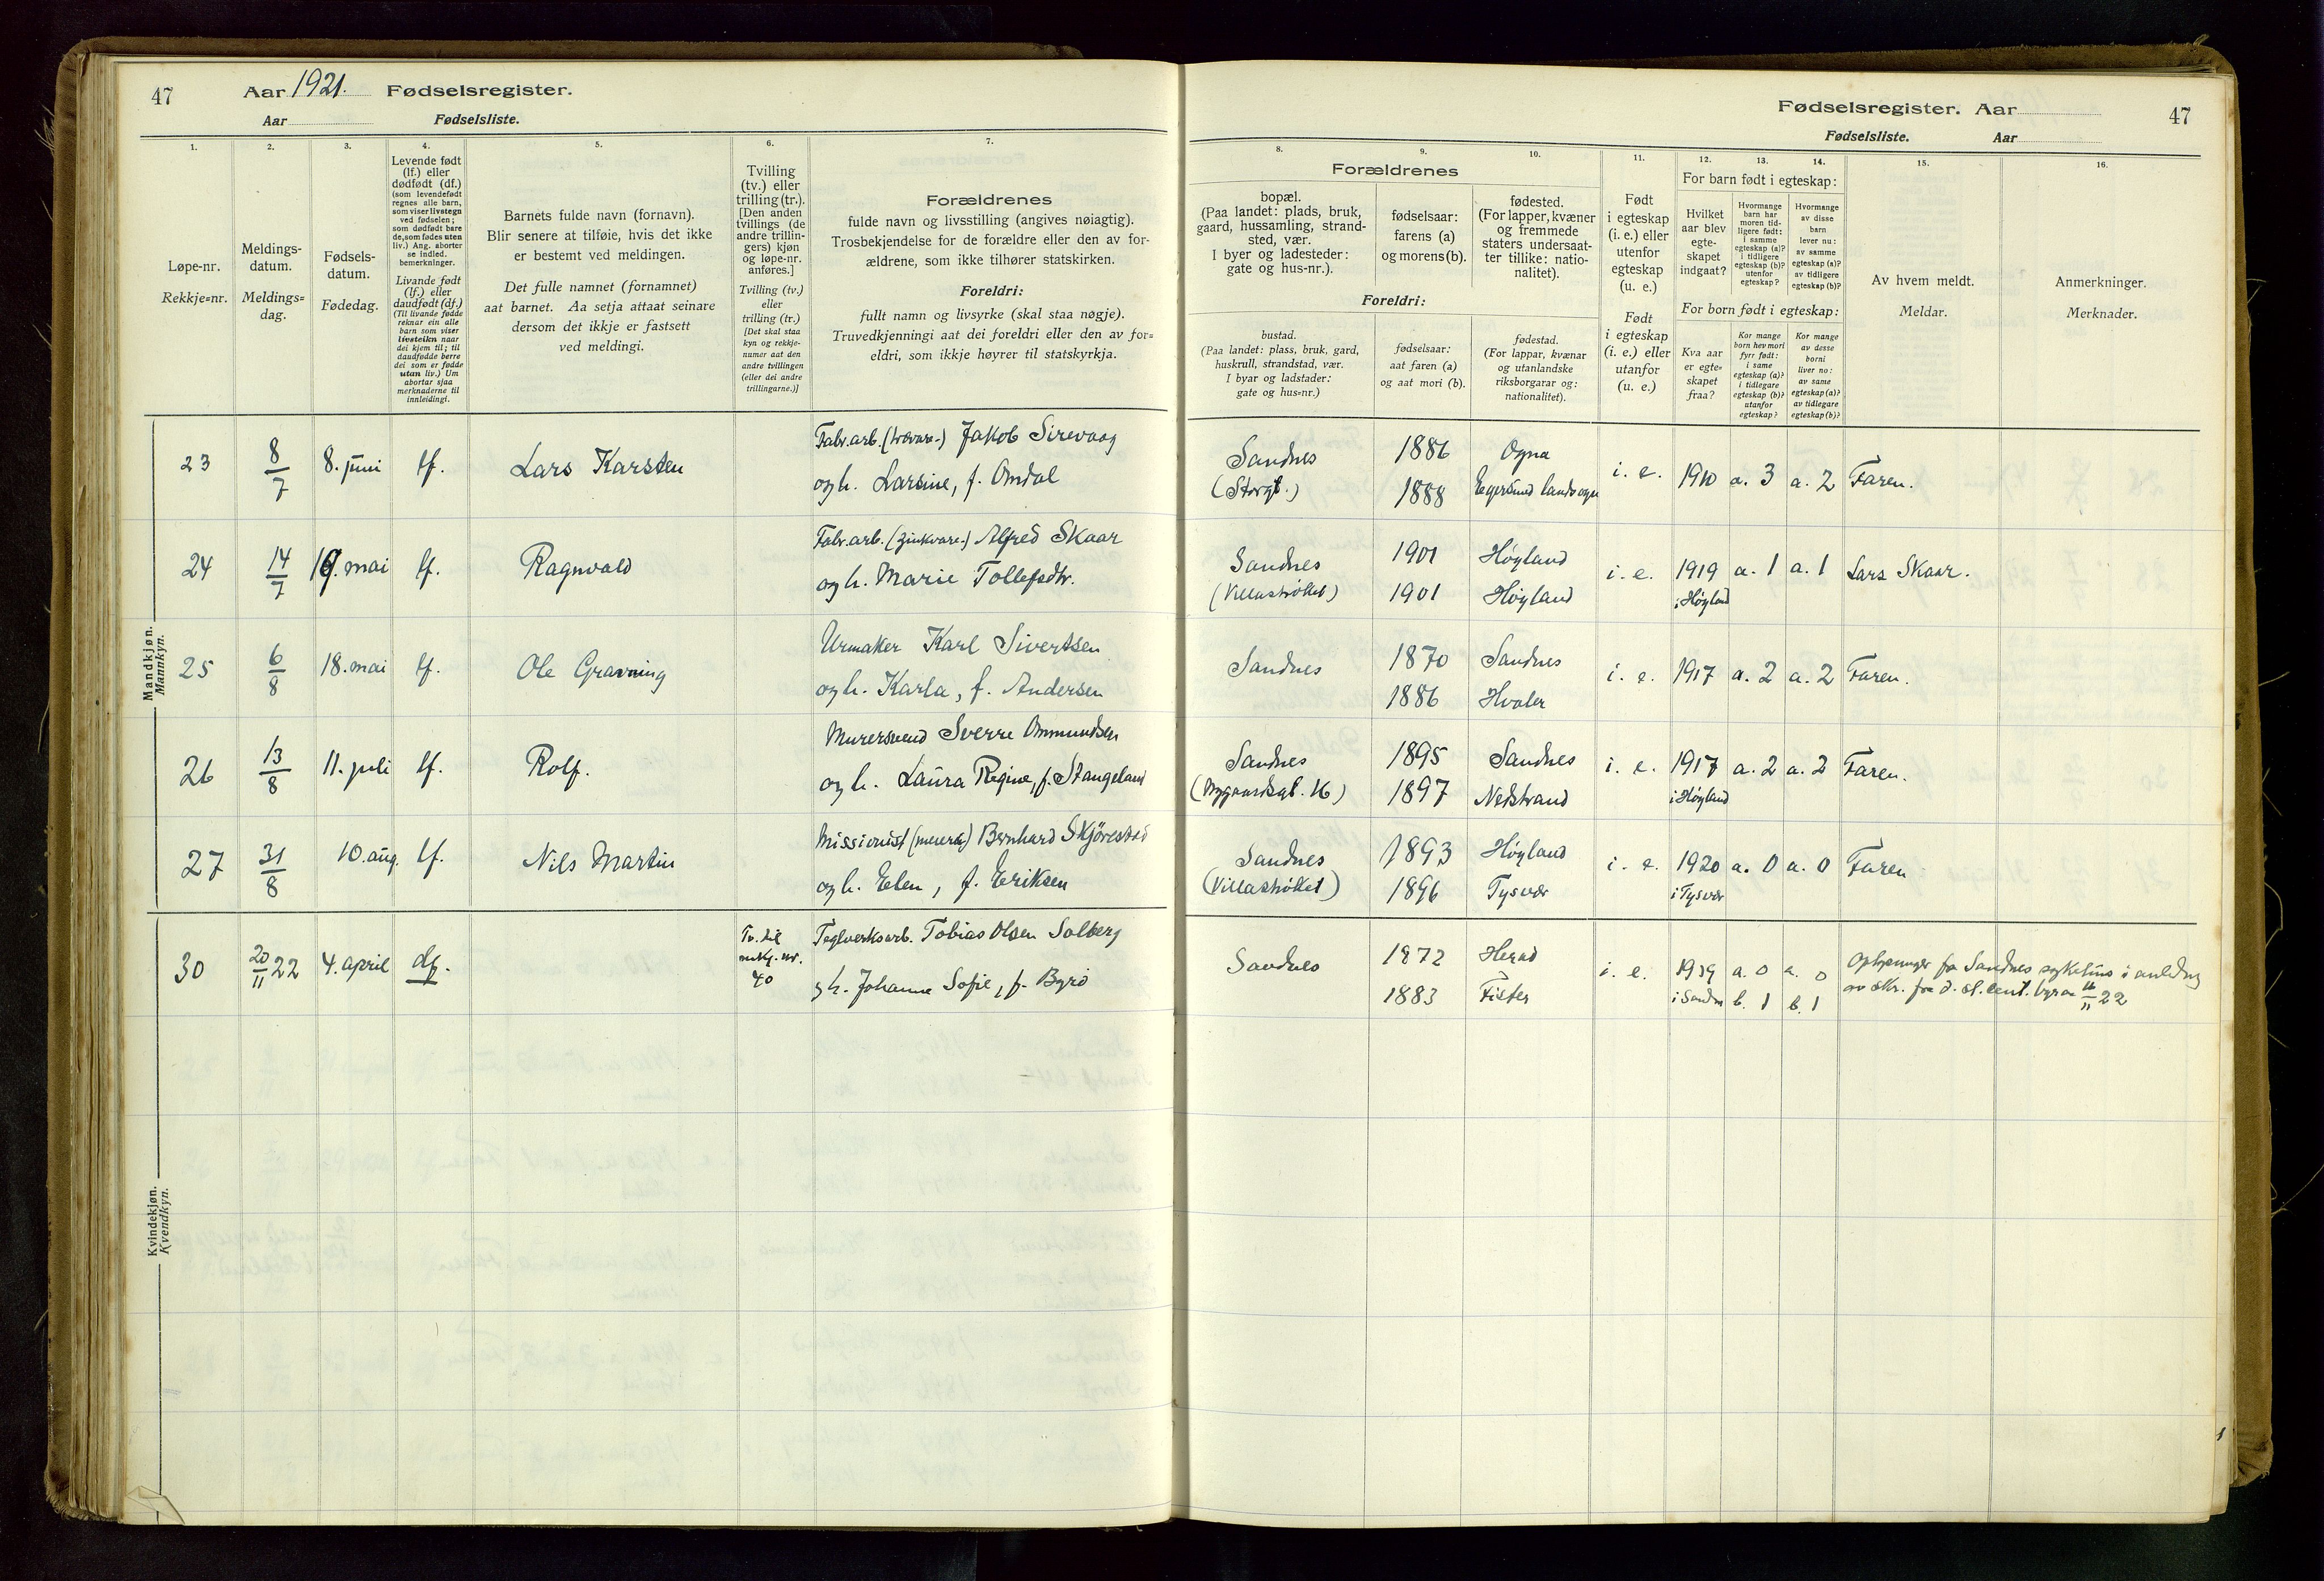 47
Aar 1921. Fødselsregister.
Aar Fødselsliste.
Fødselsregister. Aar
47
Fødselsliste. Aar
1.
Løpe-nr.
Rekkje=nr.
2.
Meldings-
datum.
Meldings=
dag.
3.
Fødsels-
datum.
Fødedag.
4.
Levende født
(lf.) eller
dødfødt (df.)
(som levendefødt
regnes alle barn,
som viser livstegn
ved fødselen;
som dødfødt bare
de, som fødes uten
liv.) Ang. aborter
se indled.
bemerkninger.
Livande født
(lf.) eller
daudfødt (df.)
(Til livande fødde
reknar ein alle
barn som viser
livsteikn naar
dei kjem til; til
daudfødde berre
dei som er fødde
utan liv.) Um
abortar sjaa
merknaderne til
innleidingi.
5.
Barnets fulde navn (fornavn).
Blir senere at tilføie, hvis det ikke
er bestemt ved meldingen.
Det fulle namnet (fornamnet)
aat barnet. Aa setja attaat seinare
dersom det ikkje er fastsett
ved meldingi.
6.
Tvilling
(tv.) eller
trilling (tr.).
[Den anden
tvillings (de
andre trillin-
gers) kjøn
og løpe-nr.
anføres.]
Tvilling (tv.)
eller
trilling (tr.)
[Det skal staa
kyn og rekkje-
numer aat den
andre tvillingen
(eller dei andre
trillingarne.)]
7.
Forældrenes
fulde navn og livsstilling (angives nøiagtig).
Trosbekjendelse for de forældre eller den av for-
ældrene, som ikke tilhører statskirken.
Foreldri:
fullt namn og livsyrke (skal staa nøgje).
Truvedkjenningi aat dei foreldri eller den av for=
eldri, som ikkje høyrer til statskyrkja.
Forældrenes
8.
bopæl.
(Paa landet: plads, bruk,
gaard, hussamling, strand-
sted, vær.
I byer og ladesteder:
gate og hus-nr.).
9.
fødselsaar:
farens (a)
og morens (b).
10.
fødested.
(For lapper, kvæner
og fremmede
staters undersaat-
ter tillike: natio-
nalitet).
Foreldri:
bustad.
(Paa landet: plass, bruk, gard,
huskrull, strandstad, vær.
I byar og ladstader:
gate og hus=nr.)
fødselsaar:
aat faren (a)
og aat mori (b).
fødestad.
(For lappar, kvænar
og utanlandske
riksborgarar og:
nationalitet).
11.
Født
i egteskap
(i. e.) eller
utenfor
egteskap
(u. e.)
Født
i egteskap
(i. e.) eller
utanfor
(u. e.)
12. 13. 14.
For barn født i egteskap:
Hvilket
aar blev
egte-
skapet
indgaat?
Hvormange
barn har
moren tid-
ligere født:
i samme
egteskap (a)?
i tidligere
egteskap (b)?
utenfor
egteskap?
Hvormange
av disse
barn
lever nu:
av samme
egteskap (a)?
av tidligere
egteskap (b)?
For born født i egteskap:
Kva aar
er egte=
skapet
fraa?
Kor mange
born hev mori
fyrr født:
i same
egteskap (a)?
i tidlegare
egteskap (b)?
utanfor
egteskap?
Kor mange
av desse
borni
liver no:
av same
egteskap (a)?
av tidlegare
egteskap (b)?
15.
Av hvem meldt.
Meldar.
16.
Anmerkninger.
Merknader.
Mandkjøn.
Mannkyn.
23 8/7 8. juni lf. Lars Karsten Fabr.arb. (trævare-) Jakob Sirevaag Sandnes 1886 Ogna i. e. 1910 a. 3 a. 2 Faren.
og h. Larsine, f. Omdal (Storgt.) 1888 Egersund landsogn
24 14/7 19. mai lf. Ragnvald Fabr.arb. (zinkvare-) Alfred Skaar Sandnes 1901 Høyland i. e. 1919 a. 1 a. 1 Lars Skaar.
og h. Marie Tollefsdtr. (Villastrøket) 1901 Høyland i Høyland
25 6/8 18. mai lf. Ole Gravning Urmaker Karl Sivertsen Sandnes 1870 Sandnes i. e. 1917 a. 2 a. 2 Faren.
og h. Karla, f. Andersen 1886 Hvaler
26 13/8 11. juli lf. Rolf. Murersvend Sverre Ommundsen Sandnes 1895 Sandnes i. e. 1917 a. 2 a. 2 Faren.
og h. Laura Regine, f. Stangeland 16) 1897 Nedstrand i Høyland
27 31/8 10. aug. lf. Nils Martin Missionist Bernhard Skjørestad Sandnes 1893 Høyland i. e. 1920 a. 0 a. 0 Faren
og h. Elen, f. Eriksen (Villastrøket) 1896 Tysvær i Tysvær
Kvindekjøn.
Kvendkyn.
30 20/11 22 4. april df. Tv. til 40 Teglverksarb. Tobias Olsen Solberg Sandnes 1872 Herad i. e. 1919 a. 0 a. 0 Oplysninger fra Sandnes sykehus i anledning
og h. Johanne Sofie, f. Byrø 1883 Fister i Sandn b. 1 b. 1 av skr. fra d. st. cent. byraa 16/11 22